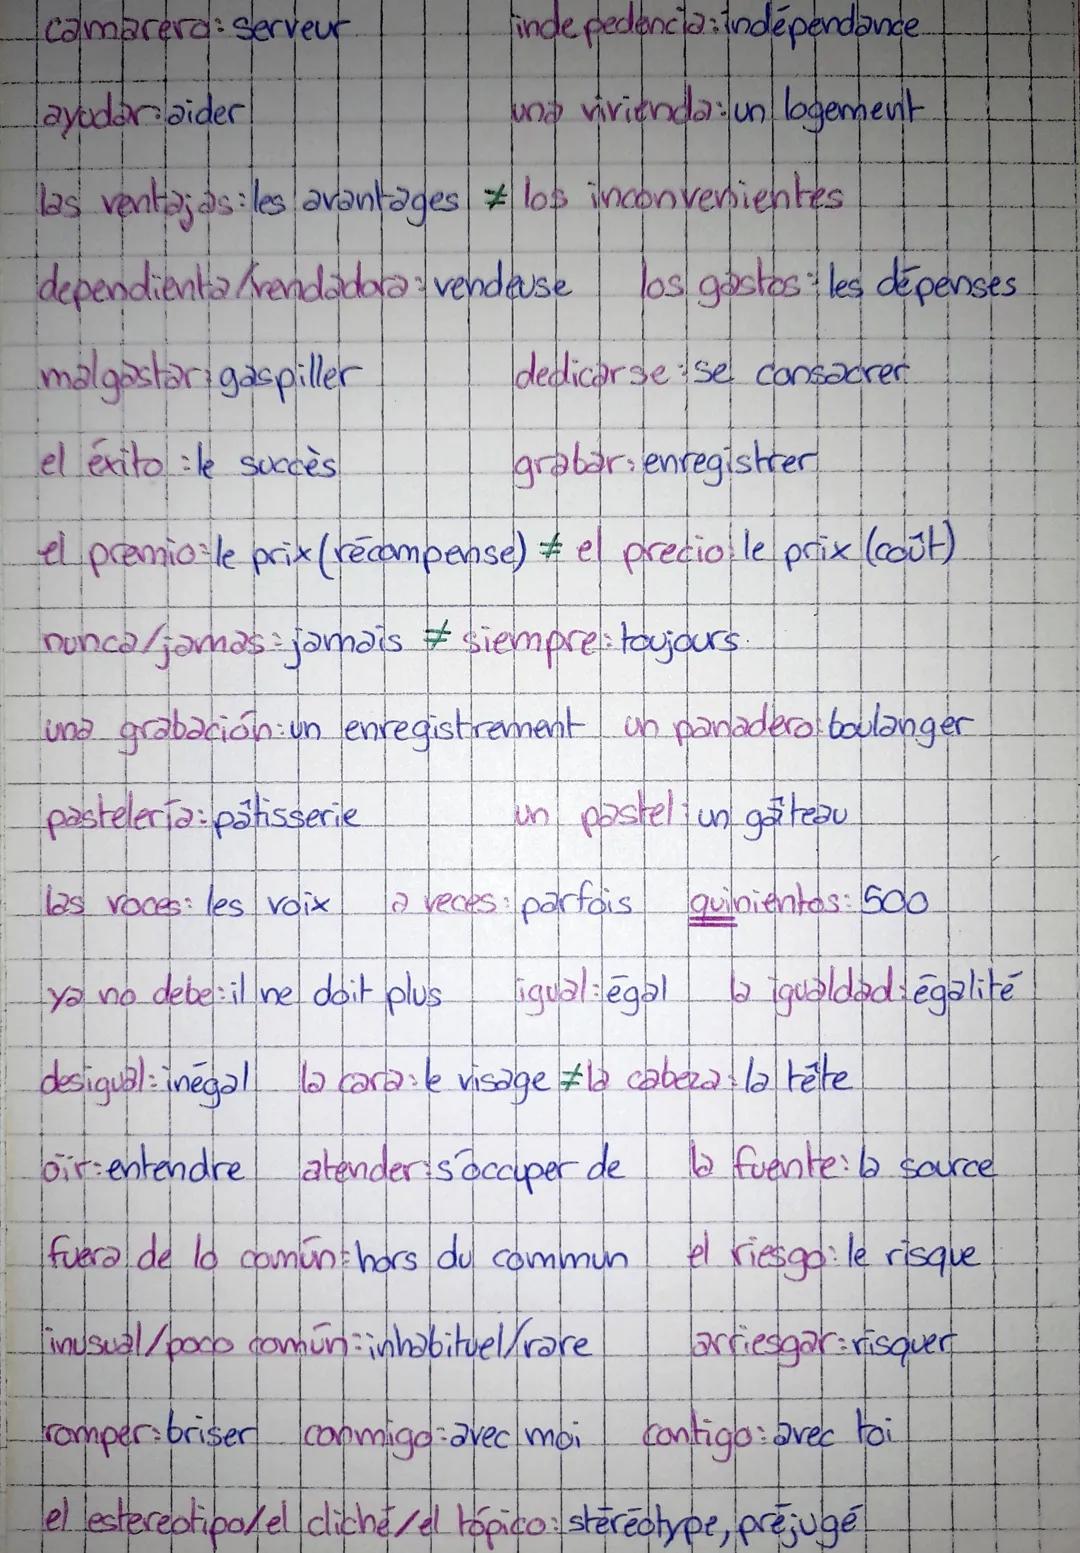 camarera: serveur indepedencia: indépendance
ayudar: aider una vivienda: un logement
las ventajas: les avantages ≠ los inconvenientes
dependienta/vendadora: vendeuse los gastos: les dépenses
malgastar: gaspiller dedicarse: se consacrer
el éxito: le succès grabar: enregistrer
el premio: le prix (récompense) ≠ el precio: le prix (coût)
nunca/jamas: jamais ≠ siempre: toujours.
una grabación: un enregistrement un panadero: boulanger
pastelería: pâtisserie un pastel: un gâteau
las voces: les voix a veces: parfois quinientos: 500
ya no debe: il ne doit plus igual: égal la igualdad: égalité
desigual: inégal la cara: le visage ≠ la cabeza: la tête
oír: entendre atender: s'occuper de la fuente: la source
fuera de lo común: hors du commun el riesgo: le risque
inusual/poco común: inhabituel/rare arriesgar: risquer
romper: briser conmigo: avec moi contigo: avec toi
el estereotipo/el cliché/el tópico: stéréotype, préjugé